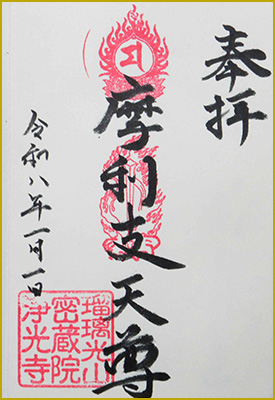 奉拝
マ
摩利支天尊
令和八年一月一日
瑠璃光山
密蔵院
浄光寺